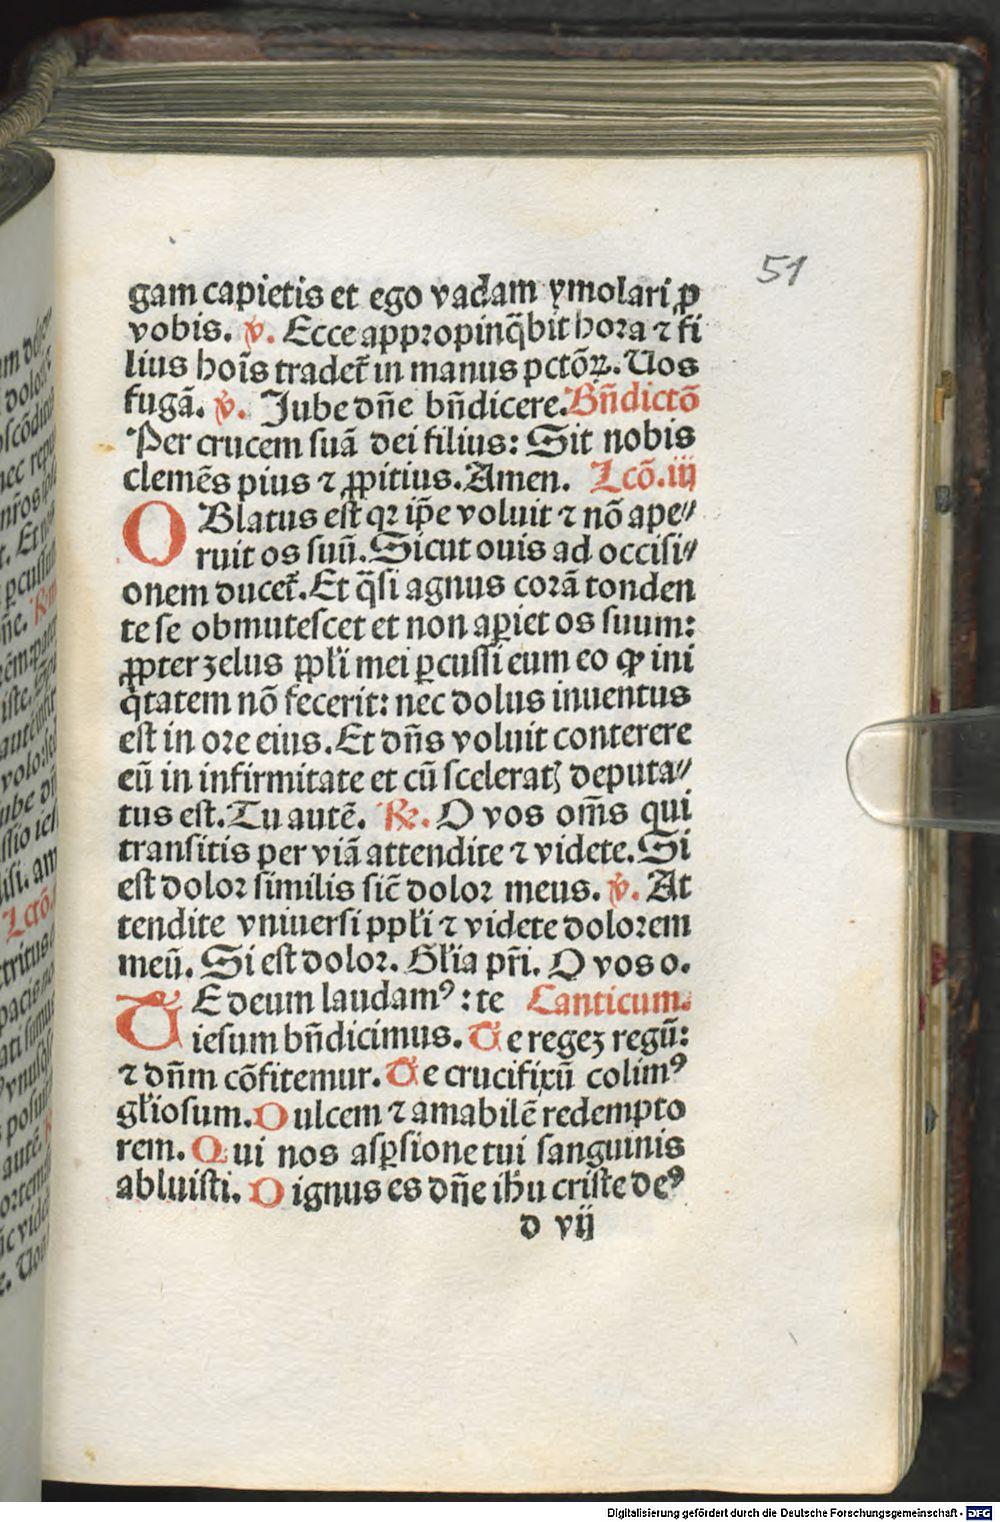 51
gam capietis et ego vadam ymolari ꝓ
vobis. ℣. Ecce appropinq̄bit hora ⁊ fi
lius hoīs tradet̄ in manus pctōꝝ. Uos
fugā. ℣. Jube dn̄e bn̄dicere. Bn̄dictō
Per crucem suā dei filius: Sit nobis
clemēs pius ⁊ ꝓpitius. Amen. Lcō. iij
OBlatus est qꝛ ip̄e voluit ⁊ nō ape⸗
ruit os suū. Sicut ouis ad occisi⸗
onem ducet̄. Et q̄si agnus corā tonden
te se obmutescet et non aꝑiet os suum:
ꝓpter zelus ppl̄i mei ꝑcussi eum eo ꝙ ini
q̄tatem nō fecerit: nec dolus inuentus
est in ore eius. Et dn̄s voluit conterere
eū in infirmitate et cū sceleratꝫ deputa⸗
tus est. Tu autē. ℟. O vos om̄s qui
transitis per viā attendite ⁊ videte. Si
est dolor similis sic̄ dolor meus. ℣. At
tendite vniuersi ppl̄i ⁊ videte dolorem
meū. Si est dolor. Gl̄ia pr̄i. O vos o.
TE deum laudamꝰ: te Canticum.
iesum bn̄dicimus. Te regeꝫ regū:
⁊ dn̄m cōfitemur. Te crucifixū colimꝰ
gl̄iosum. Dulcem ⁊ amabilē redempto
rem. Qui nos asꝑsione tui sanguinis
abluisti. Dignus es dn̄e ihū criste deꝰ
d vij
Digitalisierung gefördert durch die Deutsche Forschungsgemeinschaft - DFG